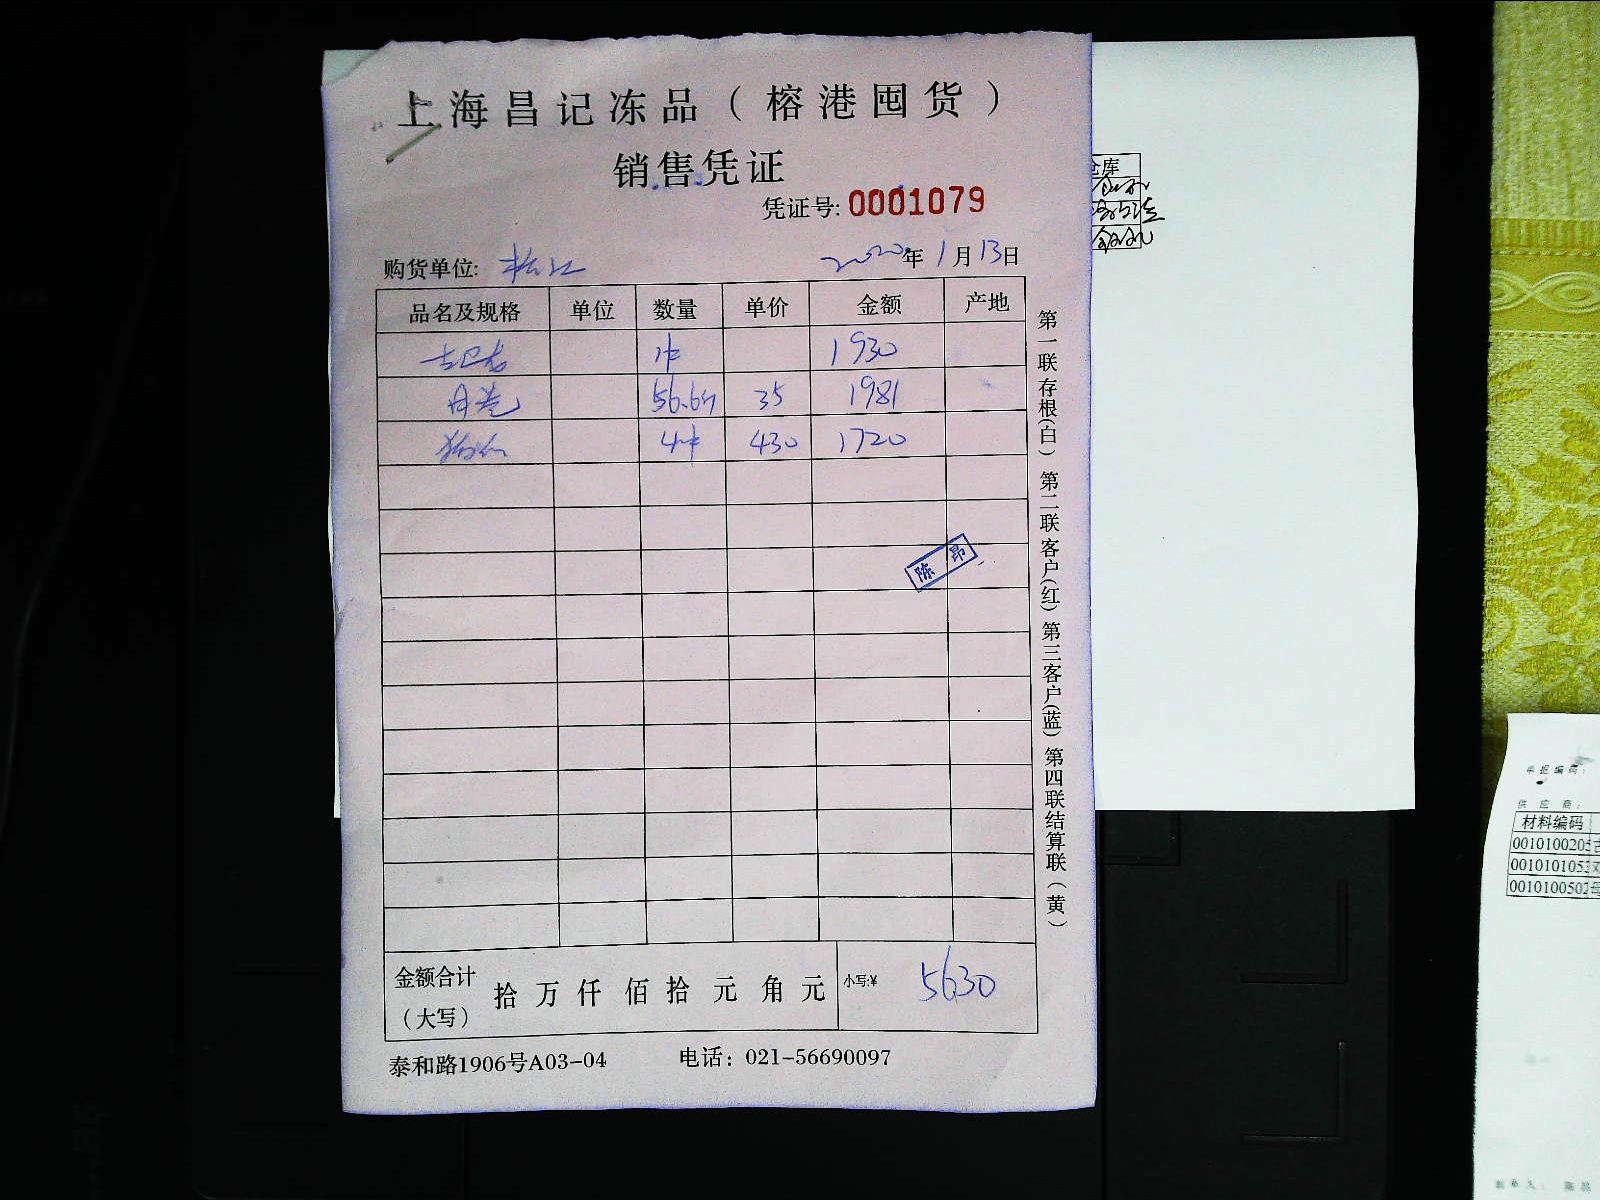 上海昌记冻品（榕港囤货）
销售凭证
凭证号: 0001079
购货单位: 松江 2020年1月13日
品名及规格 单位 数量 单价 金额 产地
1件 1930
56.6斤 35 1981
4件 430 1720
陈昂
金额合计（大写） 拾万仟佰拾元角元 小写:¥ 5630
泰和路1906号A03-04 电话：021-56690097
第一联存根(白) 第二联客户(红) 第三客户(蓝) 第四联结算联(黄)
仓库
单据编码：
供应商：
材料编码
0010100205
0010101053
0010100502
制单人：陈昂